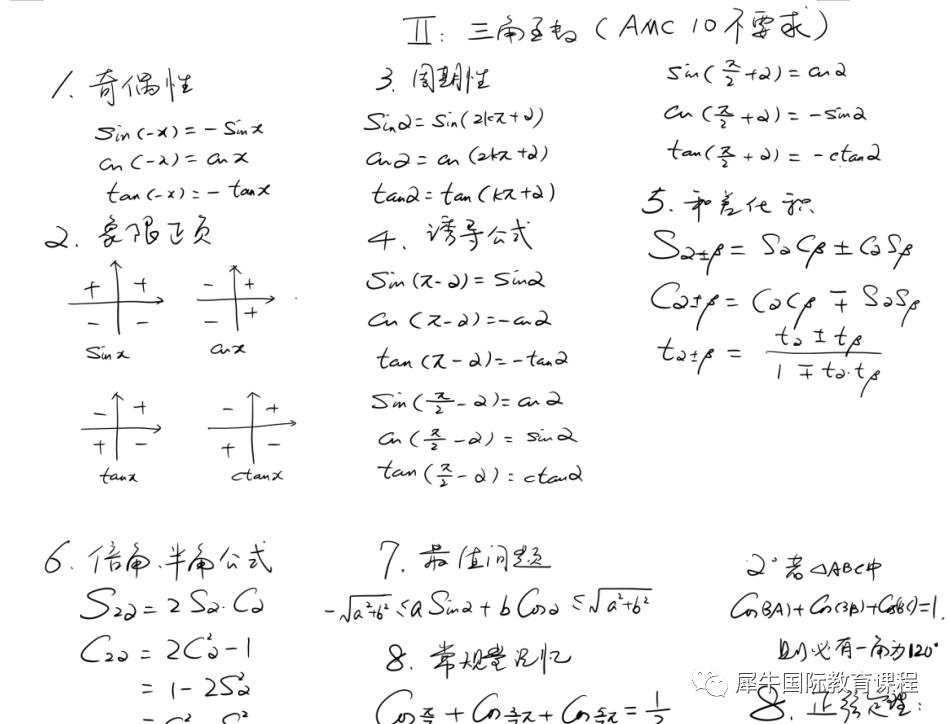 II: 三角函数 (AMC 10 不要求)
1. 奇偶性
sin(-x) = -sin x
cos(-α) = cos x
tan(-x) = -tan x
2. 象限正负
+ +
- -
sin x
- +
- +
cos x
- +
+ -
tan x
- +
+ -
ctan x
3. 周期性
sin α = sin(2kπ+α)
cos α = cos(2kπ+α)
tan α = tan(kπ+α)
4. 诱导公式
sin(π-α) = sin α
cos(π-α) = -cos α
tan(π-α) = -tan α
sin(π/2-α) = cos α
cos(π/2-α) = sin α
tan(π/2-α) = ctan α
sin(π/2+α) = cos α
cos(π/2+α) = -sin α
tan(π/2+α) = -ctan α
5. 和差化积
Sα±β = SαCβ ± CαSβ
Cα±β = CαCβ ∓ SαSβ
tα±β = (tα ± tβ) / (1 ∓ tα·tβ)
6. 倍角、半角公式
S2α = 2Sα·Cα
C2α = 2C²α - 1
= 1 - 2S²α
7. 最值问题
-√(a²+b²) ≤ a Sin α + b Cos α ≤ √(a²+b²)
8. 常规量记忆
2° 若 △ABC中
Cos(3A)+Cos(3B)+Cos(3C)=1,
则必有一角为120°
犀牛国际教育课程
8. 正弦定理: